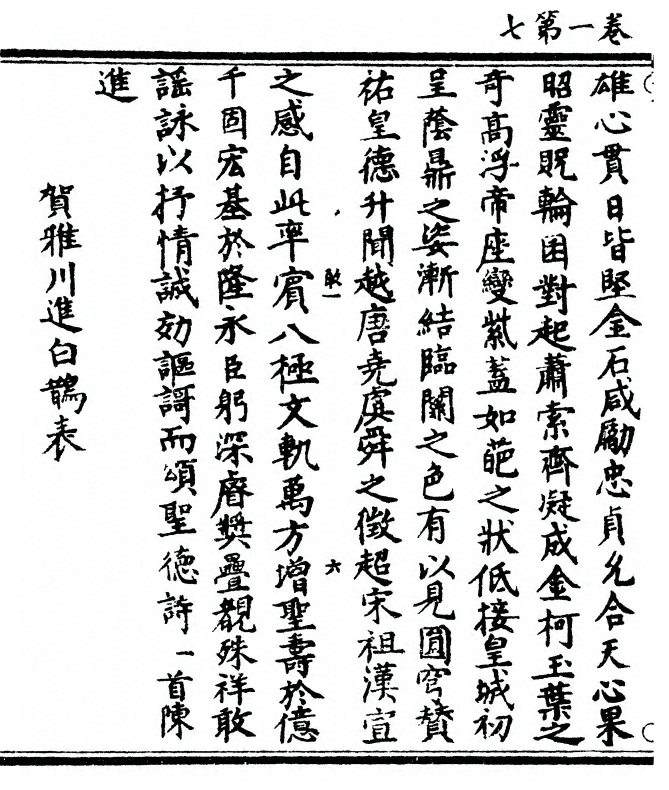 卷一第七
雄心貫日皆堅金石咸勵忠貞允合天心果
昭靈貺輪囷對起蕭索齊凝成金柯玉葉之
奇高浮帝座變紫蓋如葩之狀低接皇城初
呈蔭鼎之姿漸結臨關之色有以見圓穹贊
祐皇德升聞越唐堯虞舜之徵超宋祖漢宣
六
之感自此率賓八極文軌萬方增聖壽於億
千固宏基於隆永臣躬深睿獎疊覩殊祥敢
謡詠以抒情誠効謳謌而頌聖德詩一首陳
進
賀雅川進白鵲表